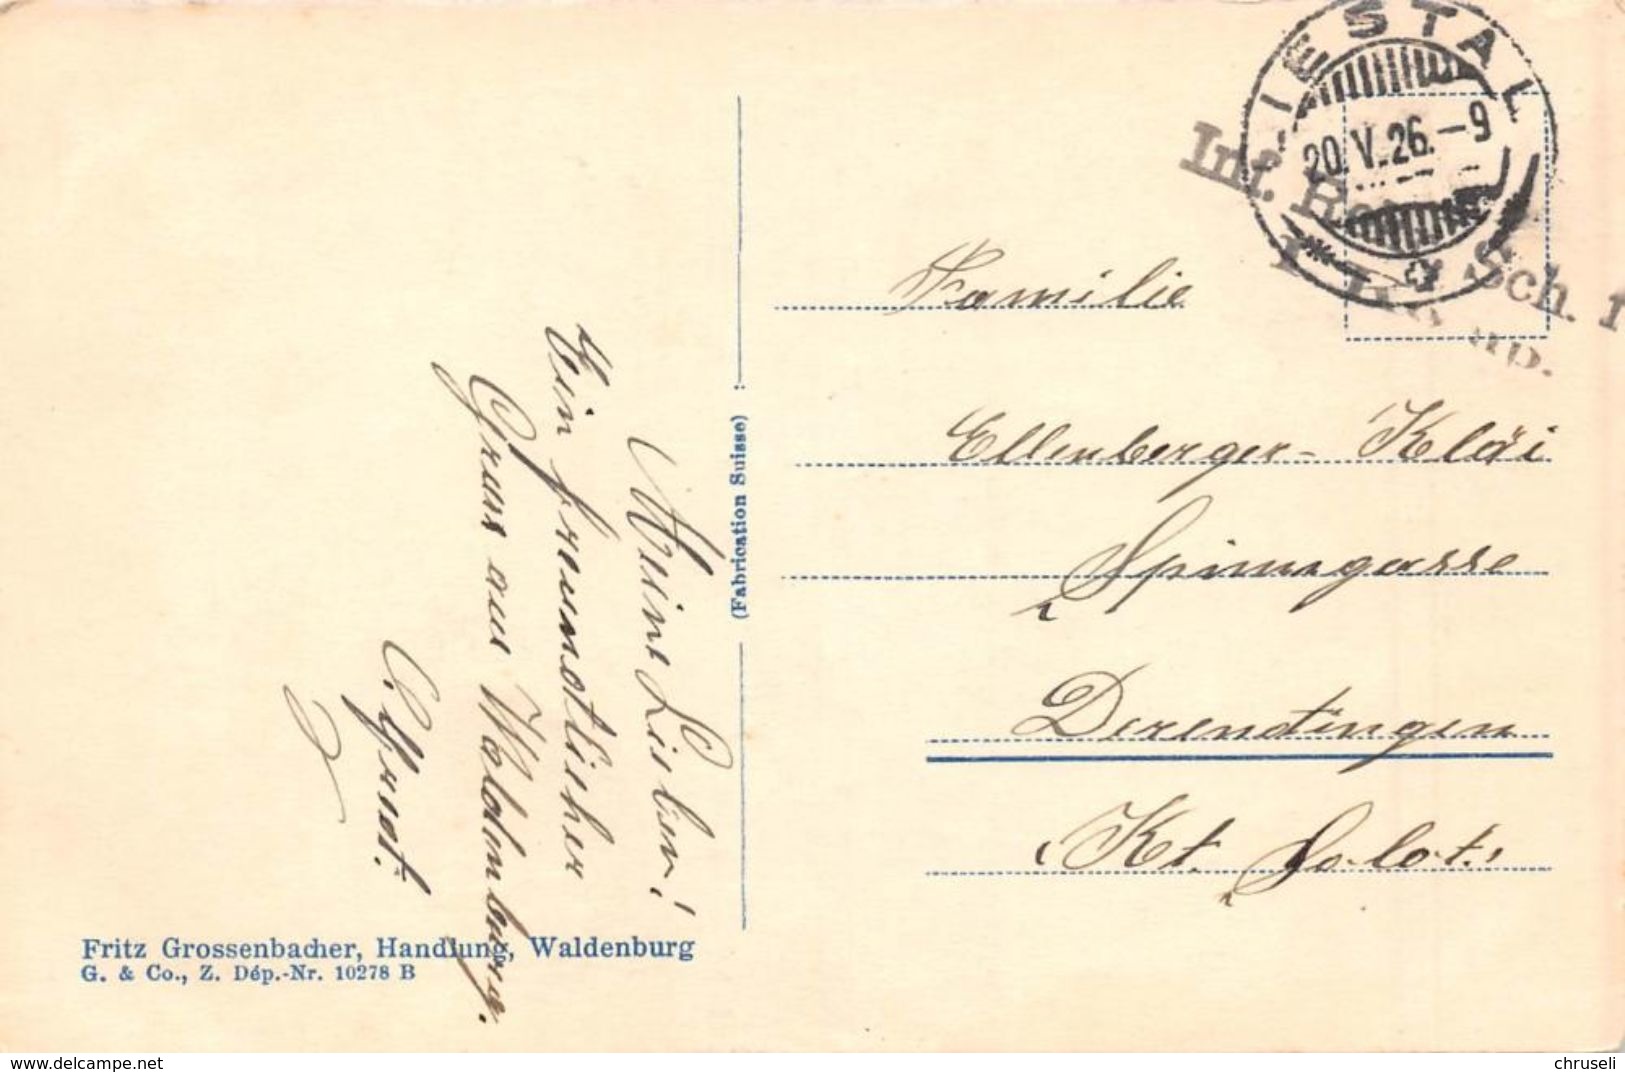 LIESTAL
20.V.26.–9
Inf.
Sch. 1
Familie
Ellenberger-Kläi
Spinngasse
Derendingen
Kt. Solot.
Meine Lieben!
Ein freundlicher
Gruss aus Waldenburg.
(Fabrication Suisse)
Fritz Grossenbacher, Handlung, Waldenburg
G. & Co., Z. Dép.-Nr. 10278 B
www.delcampe.net
chruseli